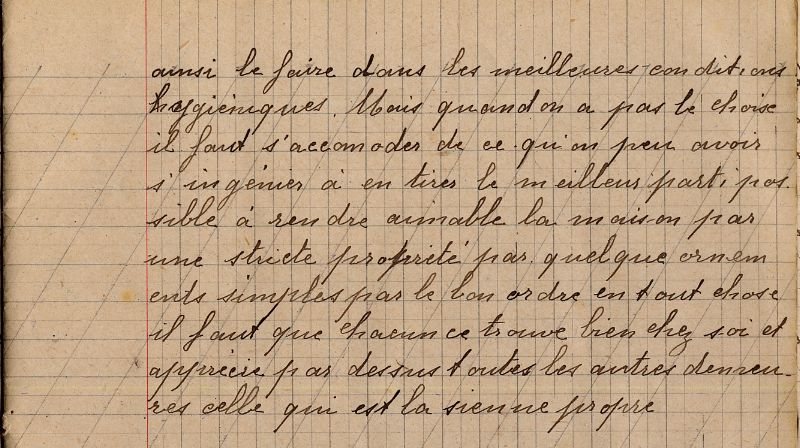 ainsi le faire dans les meilleures conditions
hygiéniques. Mais quand on a pas le choise
il faut s'accomoder de ce qu'on peu avoir
s'ingénier à en tirer le meilleur parti pos
sible à rendre aimable la maison par
une stricte propriété par quelque ornem
ents simples par le bon ordre en tout chose
il faut que chacun ce trouve bien chez soi et
apprécie par dessus toutes les autres demeu-
res celle qui est la sienne propre